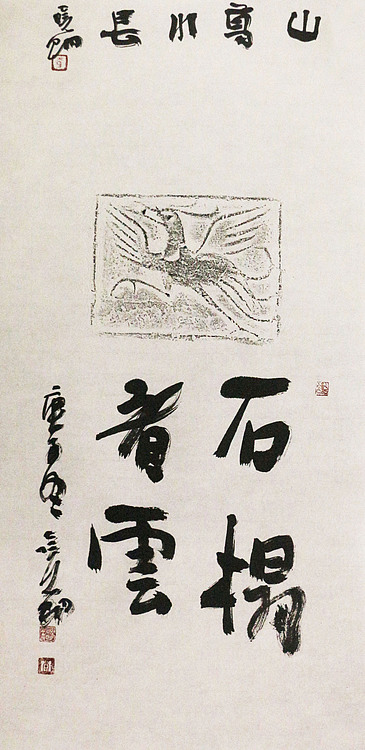 山高水長
石榻
看雲
庚子冬